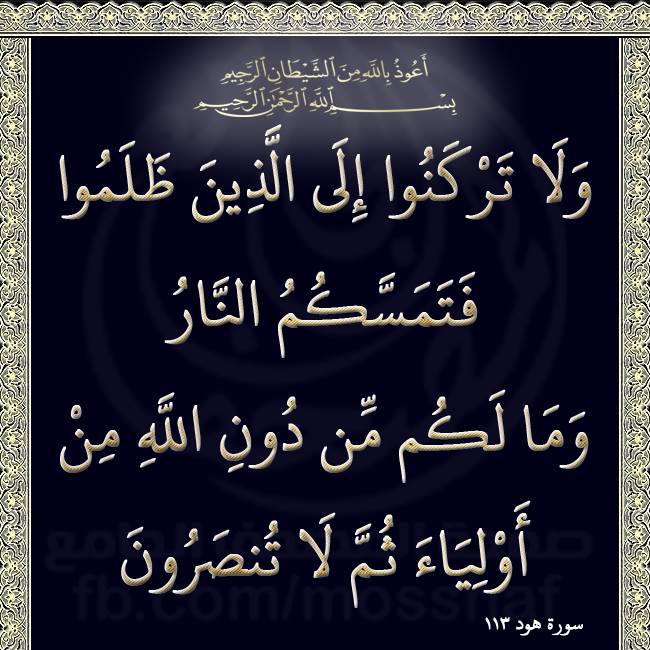 أَعُوذُ بِاللَّهِ مِنَ الشَّيْطَانِ الرَّجِيمِ
بِسْمِ اللَّهِ الرَّحْمَٰنِ الرَّحِيمِ
وَلَا تَرْكَنُوا إِلَى الَّذِينَ ظَلَمُوا
فَتَمَسَّكُمُ النَّارُ
وَمَا لَكُم مِّن دُونِ اللَّهِ مِنْ
أَوْلِيَاءَ ثُمَّ لَا تُنصَرُونَ
fb.com/mosshaf
سورة هود ١١٣